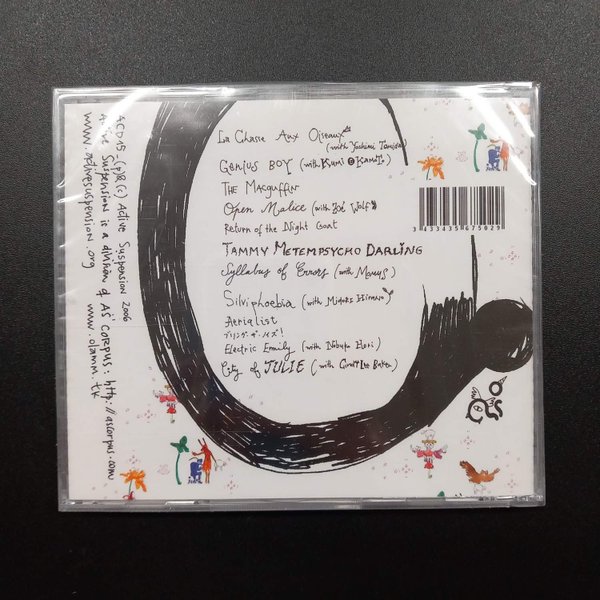 La Chasse Aux Oiseaux
(with Yoshimi Tomida)
Genius Boy (with Kumi Okamoto)
The Macguffin
Open Malice (with Zoé Wolf)
Return of the Night Goat
Tammy Metempsycho Darling
Syllabus of Errors (with Momus)
Silviphoebia (with Midori Hirano)
Aerialist
Electric Emmily (with Nobuko Hori)
City of JULIE (with
3 433435 675029
ACD15_(p)&(c) Active Suspension 2006
Active Suspension is a division of AS'CORPUS: http://ascorpus.com
www.activesuspension.org
www.olamm.tk